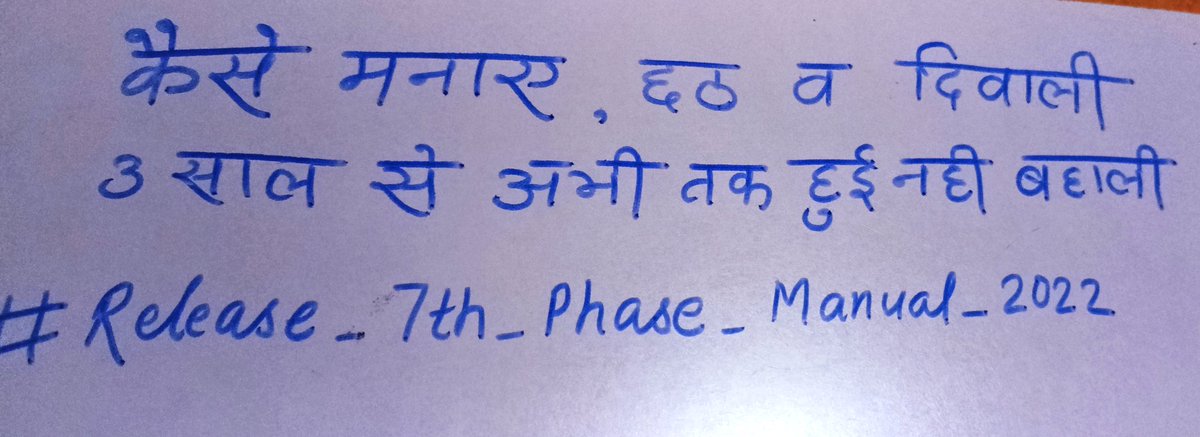 कैसे मनाए, छठ व दिवाली
3 साल से अभी तक हुई नही बहाली
#Release_7th_Phase_Manual_2022